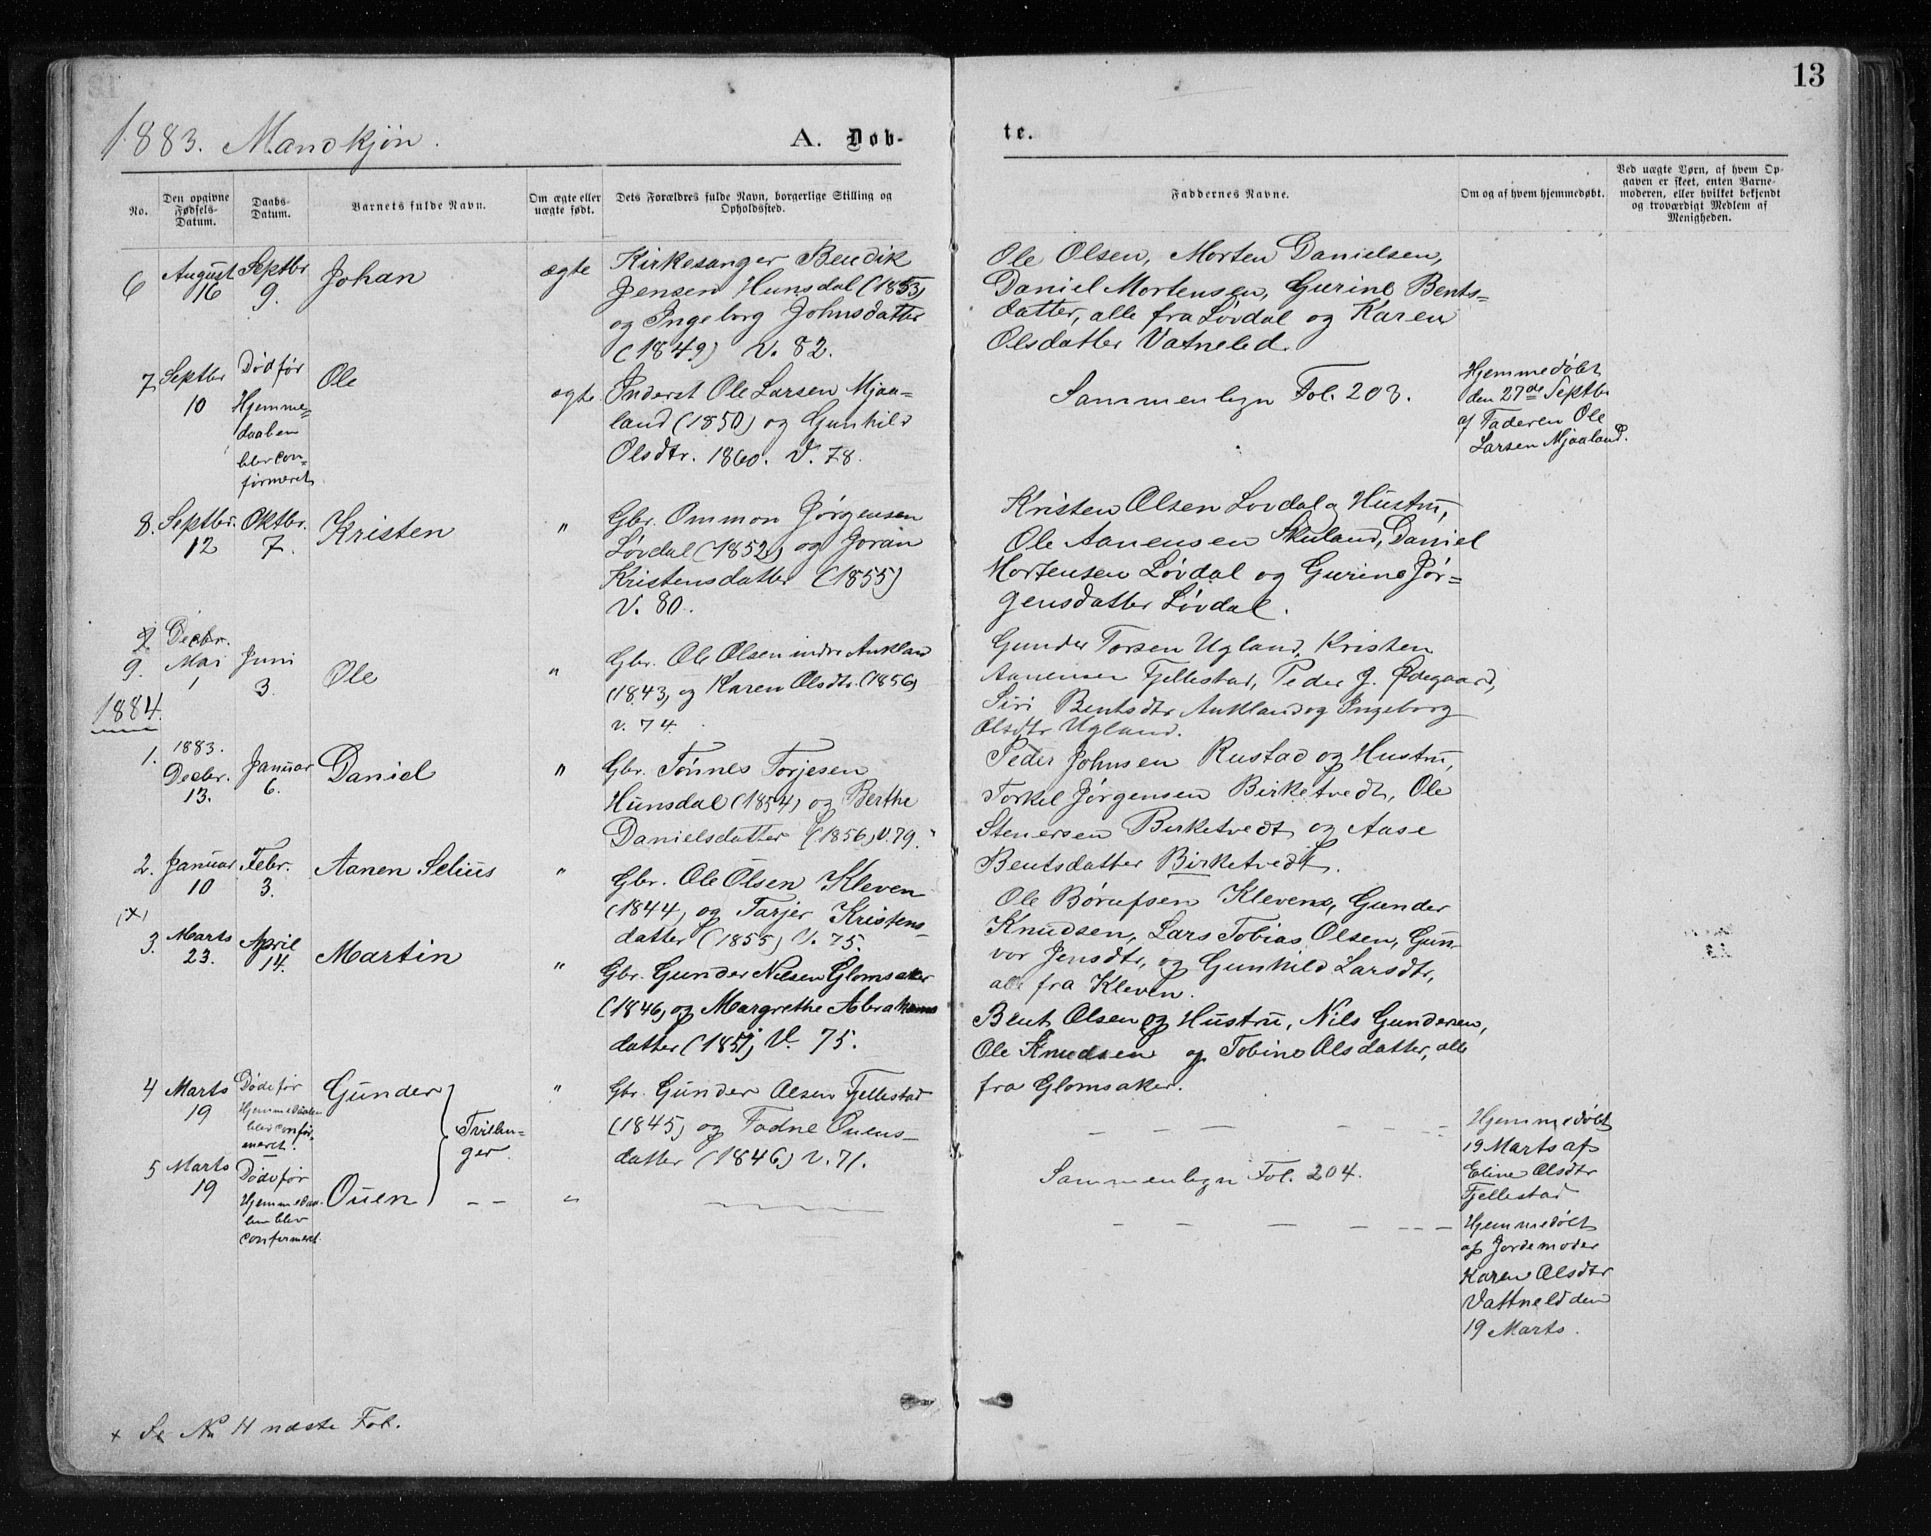 13
1883. Mandkjøn.
A. Døb-
te.
No.
Den opgivne Fødsels-Datum.
Daabs-Datum.
Barnets fulde Navn.
Om ægte eller uægte født.
Dets Forældres fulde Navn, borgerlige Stilling og Opholdssted.
Faddernes Navne.
Om og af hvem hjemmedøbt.
Ved uægte Børn, af hvem Op-
gaven er skeet, enten Barne-
moderen, eller hvilket bekjendt
og troværdigt Medlem af
Menigheden.
6
August 16
Septbr 9.
Johan
ægte
Kirkesanger Bendik
Jensen Hunsdal (1853)
og Ingeborg Johnsdatter
(1849) V. 82.
Ole Olsen, Morten Danielsen,
Daniel Mortensen, Gurine Bents=
datter, alle fra Løvdal og Karen
Olsdatter Vatneled.
7
Septbr 10
Død før
Hjemme=
daaben
blev con=
firmeret.
Ole
ægte
Inderst Ole Larsen Mjaa=
land (1850) og Gunhild
Olsdtr. 1860. V. 78.
Sammenlegn Fol. 203.
Hjemmedøbt
den 27de Septbr
af Faderen Ole
Larsen Mjaaland.
8.
Septbr. 12
Oktbr. 7.
Kristen
"
Gbr. Ommon Jørgensen
Løvdal (1852) og Joran
Kristensdatter (1855)
V. 80.
Kristen Olsen Lovdal og Hustru,
Ole Aanensen Skuland, Daniel
Mortensen Løvdal og Gurine Jør=
gensdatter Løvdal.
9.
Decbr.
Mai 1
Juni 3.
Ole
"
Gbr. Ole Olsen indre Aukland
(1843) og Karen Olsdtr. (1856)
v. 74.
Gunder Torsen Ugland, Kristen
Aanensen Fjellestad, Peder J. Ødegaard,
Siri Bentsdtr Aukland og Ingeborg
Olsdtr Ugland.
1884.
1.
1883.
Decbr. 13.
Januar 6.
Daniel
"
Gbr. Tønnes Torjesen
Hunsdal (1854) og Berthe
Danielsdatter (1856) V. 79.
Peder Johnsen Rustad og Hustru,
Torkel Jørgensen Birketvedt, Ole
Stenersen Birketvedt og Aase
Bentsdatter Birketvedt.
2.
Januar 10
Febr. 3.
Aanen Selius
"
Gbr. Ole Olsen Kleven
(1844) og Tarjer Kristens-
datter (1855) V. 75.
Ole Børufsen Kleven, Gunder
Knudsen, Lars Tobias Olsen, Gun-
vor Jensdtr, og Gunhild Larsdtr,
alle fra Kleven.
(X)
3.
Marts 23.
April 14.
Martin
"
Gbr. Gunder Nilsen Glomsaker
(1846) og Margrethe Abrahams
datter (1851) V. 75.
Bent Olsen og Hustru, Nils Gundersen,
Ole Knudsen og Tobine Olsdatter, alle
fra Glomsaker.
4
Marts 19
Døde før
Hjemmedaaben
blev confir-
meret.
Gunder
Tvillin-
ger.
"
Gbr. Gunder Olsen Fjellestad
(1845) og Tadne Ouens-
datter (1846) V. 71.
Hjemmedøbt
19 Marts af
Eline Olsdtr
Fjellestad
5
Marts 19
Døde før
Hjemmedaa-
ben blev
confirmeret.
Ouen
- -
"
Sammenlegn Fol. 204.
Hjemmedøbt
af Jordemoder
Karen Olsdtr
Vattneld den
19 Marts.
x Se No 4 næste Fol.